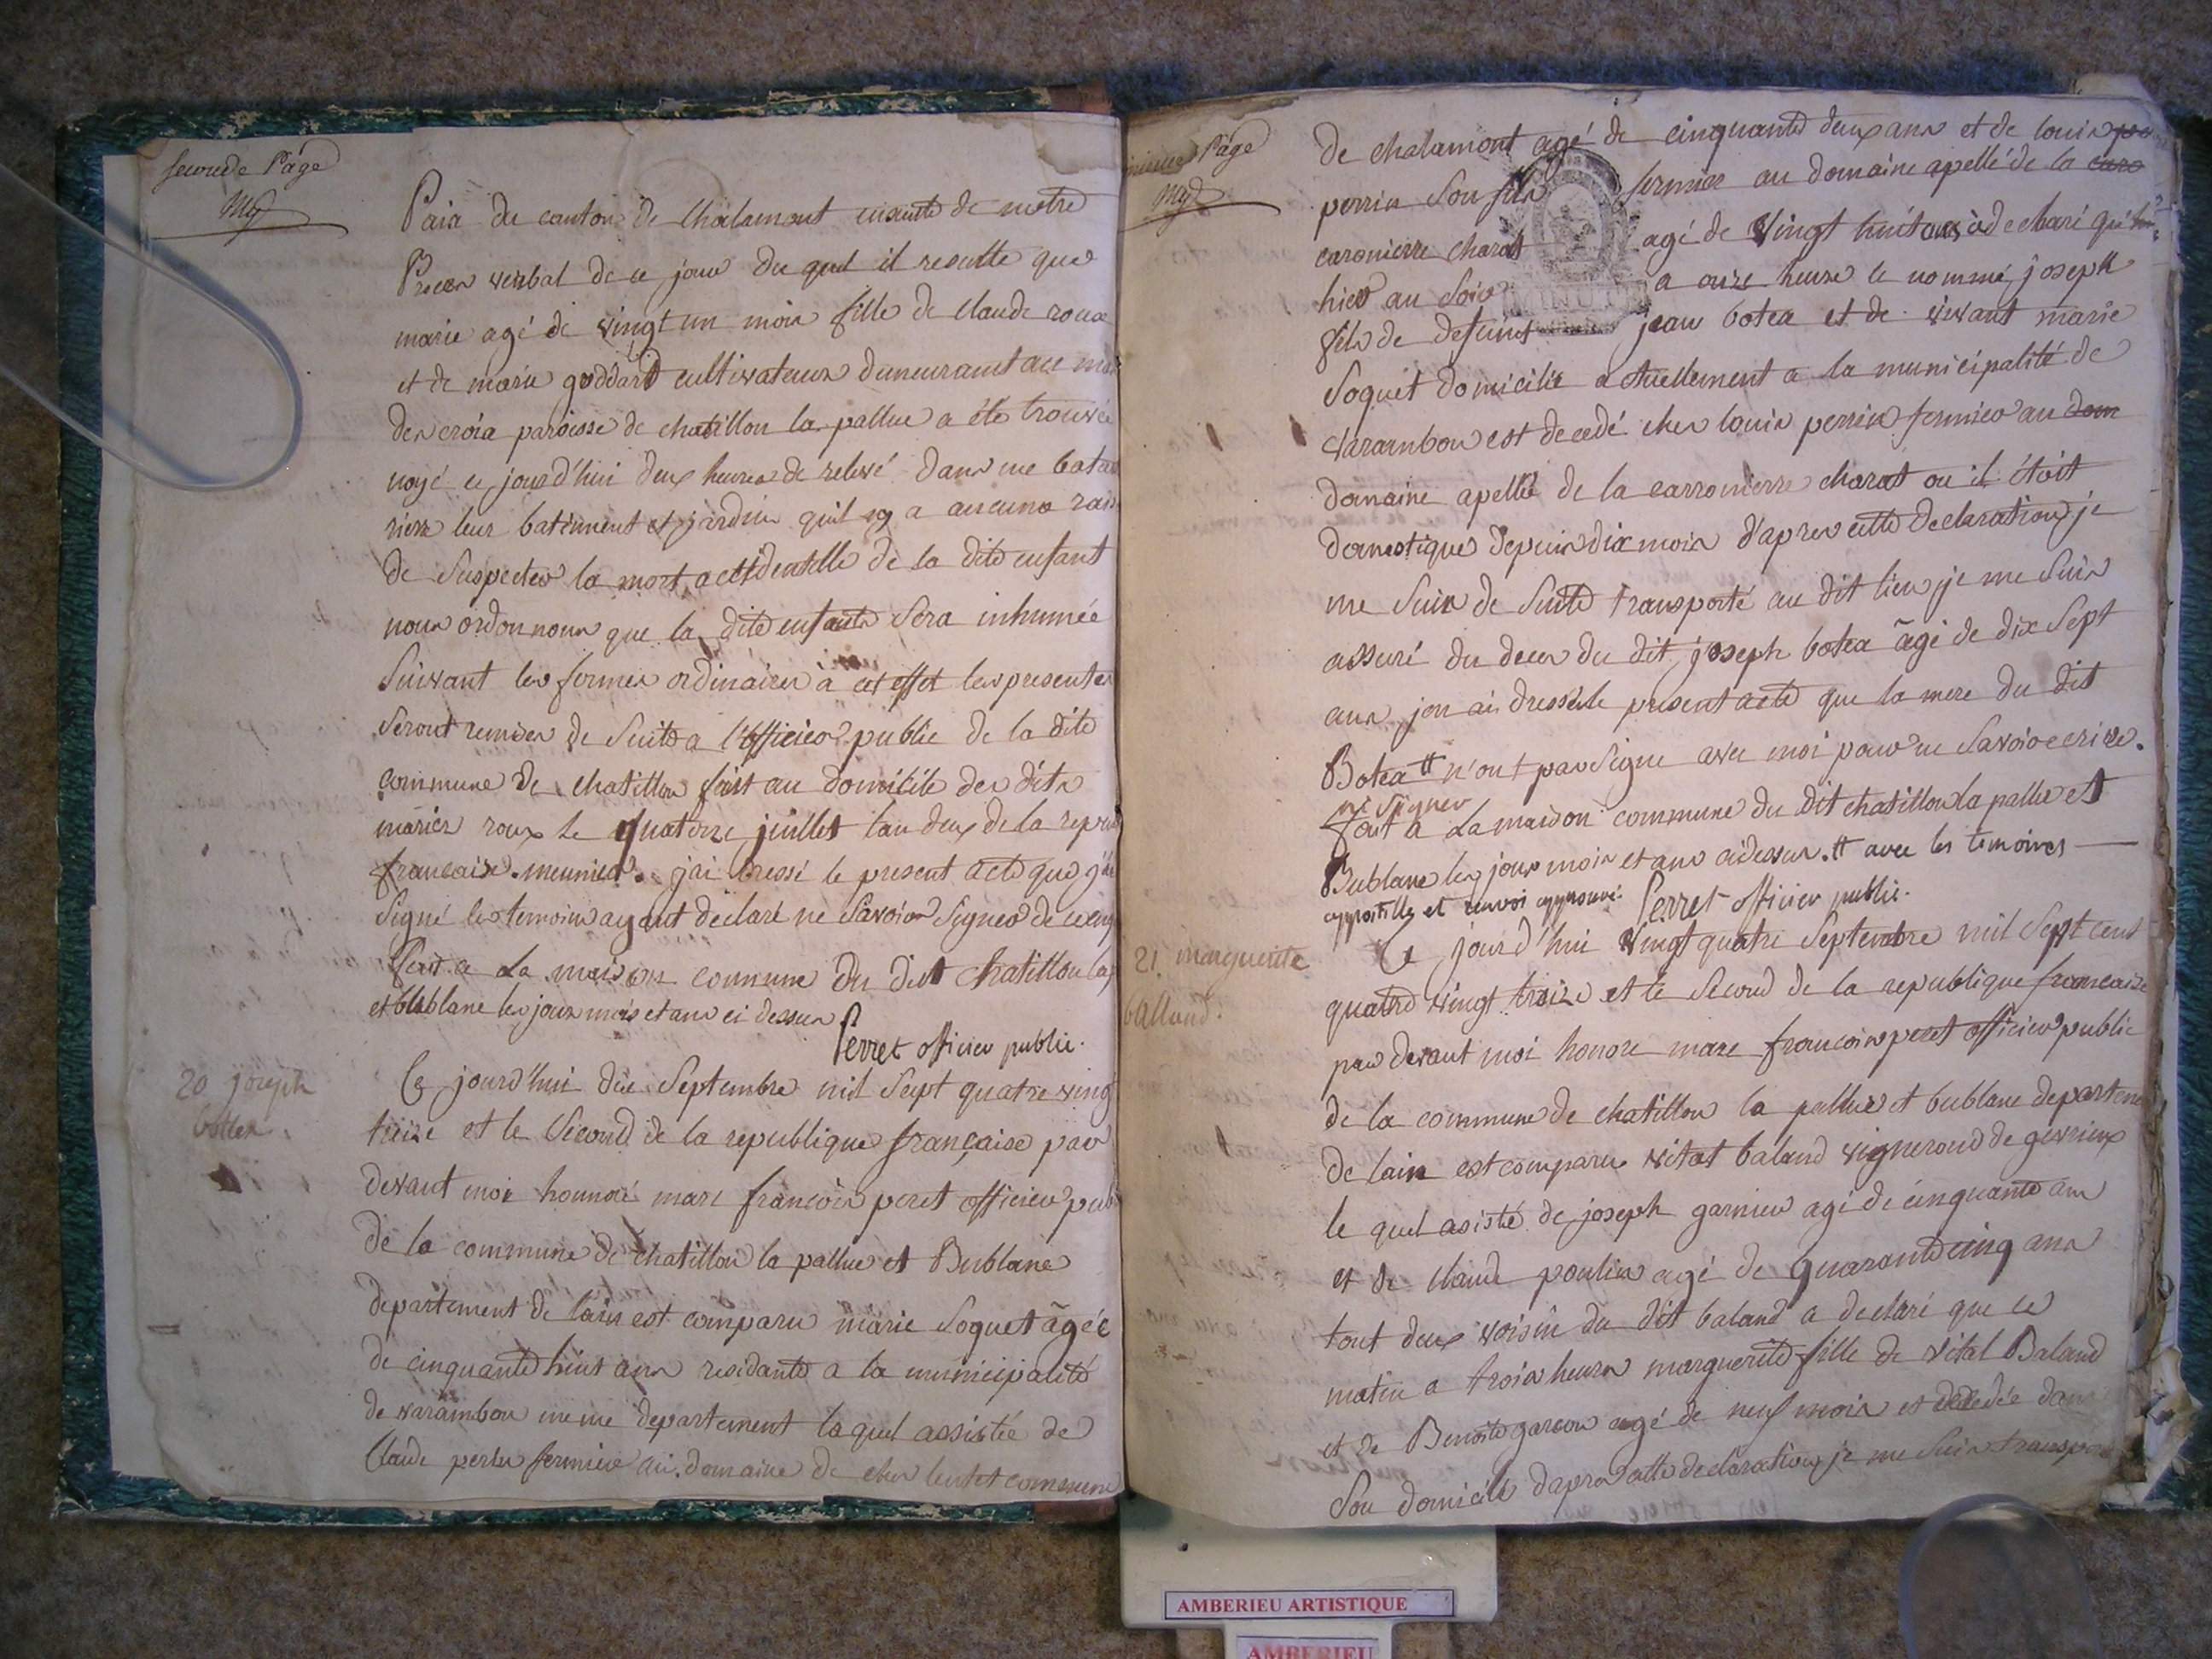 seconde Page
Paix du canton de Chalamont ensuite de notre
Procès verbal de ce jour du quel il resulte que
marie agé de vingt un mois fille de Claude roux
et de marie goddard cultivateurs demeurant au mas
des croix paroisse de chatillon la pallue a été trouvée
noyé ce jourd'hui deux heures de relevé dans une
riere leur batiment et jardin quil ny a aucune
de suspecter la mort accidentelle de la dite enfant
nous ordonnons que la dite enfante sera inhumée
Suivant les formes ordinaires à cet effet les presentes
Seront remises de Suite a l'officier public de la dite
commune de chatillon fait au domicile des dits
mariés roux le quatorze juillet l'an deux de la
francaise. meunier. j'ai dressé le present acte que j'ai
Signé les temoins ayant declaré ne Savoir Signer de ce
fait a La maison commune du dit Chatillon la
et bublane les jours mois et ans ci dessus
Perret officier public.
20 joseph
bottex.
Ce jourd'hui dix Septembre mil Sept quatre ving
treize et le Second de la republique française par
devant moi honnoré marc françois peret officier pub
de la commune de chatillon la pallue et Bublane
departement de lain est comparu marie Soquet âgée
de cinquante huit ans residante a la municipalité
de varambon meme departement laquel assistée de
Claude perin fermier au domaine de chez commune
Page
de chalamont agé de cinquante deux ans et de louis
perrin Son fils fermier au domaine apellé de la
caronierre charat agé de Vingt huit ans a declaré
hier au Soir a onze heure le nommé joseph
fils de defunt jean botea et de vivant marie
Soquet domicilié actuellement a la municipalité de
varambon est decedé chez louis perrin fermier au dom
domaine apellé de la carronierre charat ou il étoit
domestique depuis dix mois d'apres cette declaration je
me Suis de Suite transporté au dit lieu je me Suis
assuré du deces du dit joseph botea âgé de dix Sept
ans jen ai dressé le present acte que la mere du dit
Botea # n'ont pas Signé avec moi pour ne Savoir ecrire.
ni signer
fait a La maison commune du dit chatillon la pallue et
Bublane les jour mois et ans cidessus. # avec les temoins
appostille et renvoi approuvé. Perret officier public.
21. marguerite
balland.
Ce jourd'hui Vingt quatre Septembre mil Sept cent
quatre vingt treize et le Second de la republique francaise
par devant moi honore marc francois peret officier public
de la commune de chatillon la pallue et bublane departeme
de lain est comparu vital baland vigneron de gevrieux
le quel asisté de joseph garnier agé de cinquante ans
et de Claude poulin agé de quarante cinq ans
tout deux voisin du dit baland a declaré que ce
matin a trois heures marguerite fille de vital Baland
et de Benoite garcon agé de neuf mois et decedée dans
Son domicile dapres cette declaration je me Suis transpor
AMBERIEU ARTISTIQUE
AMBERIEU